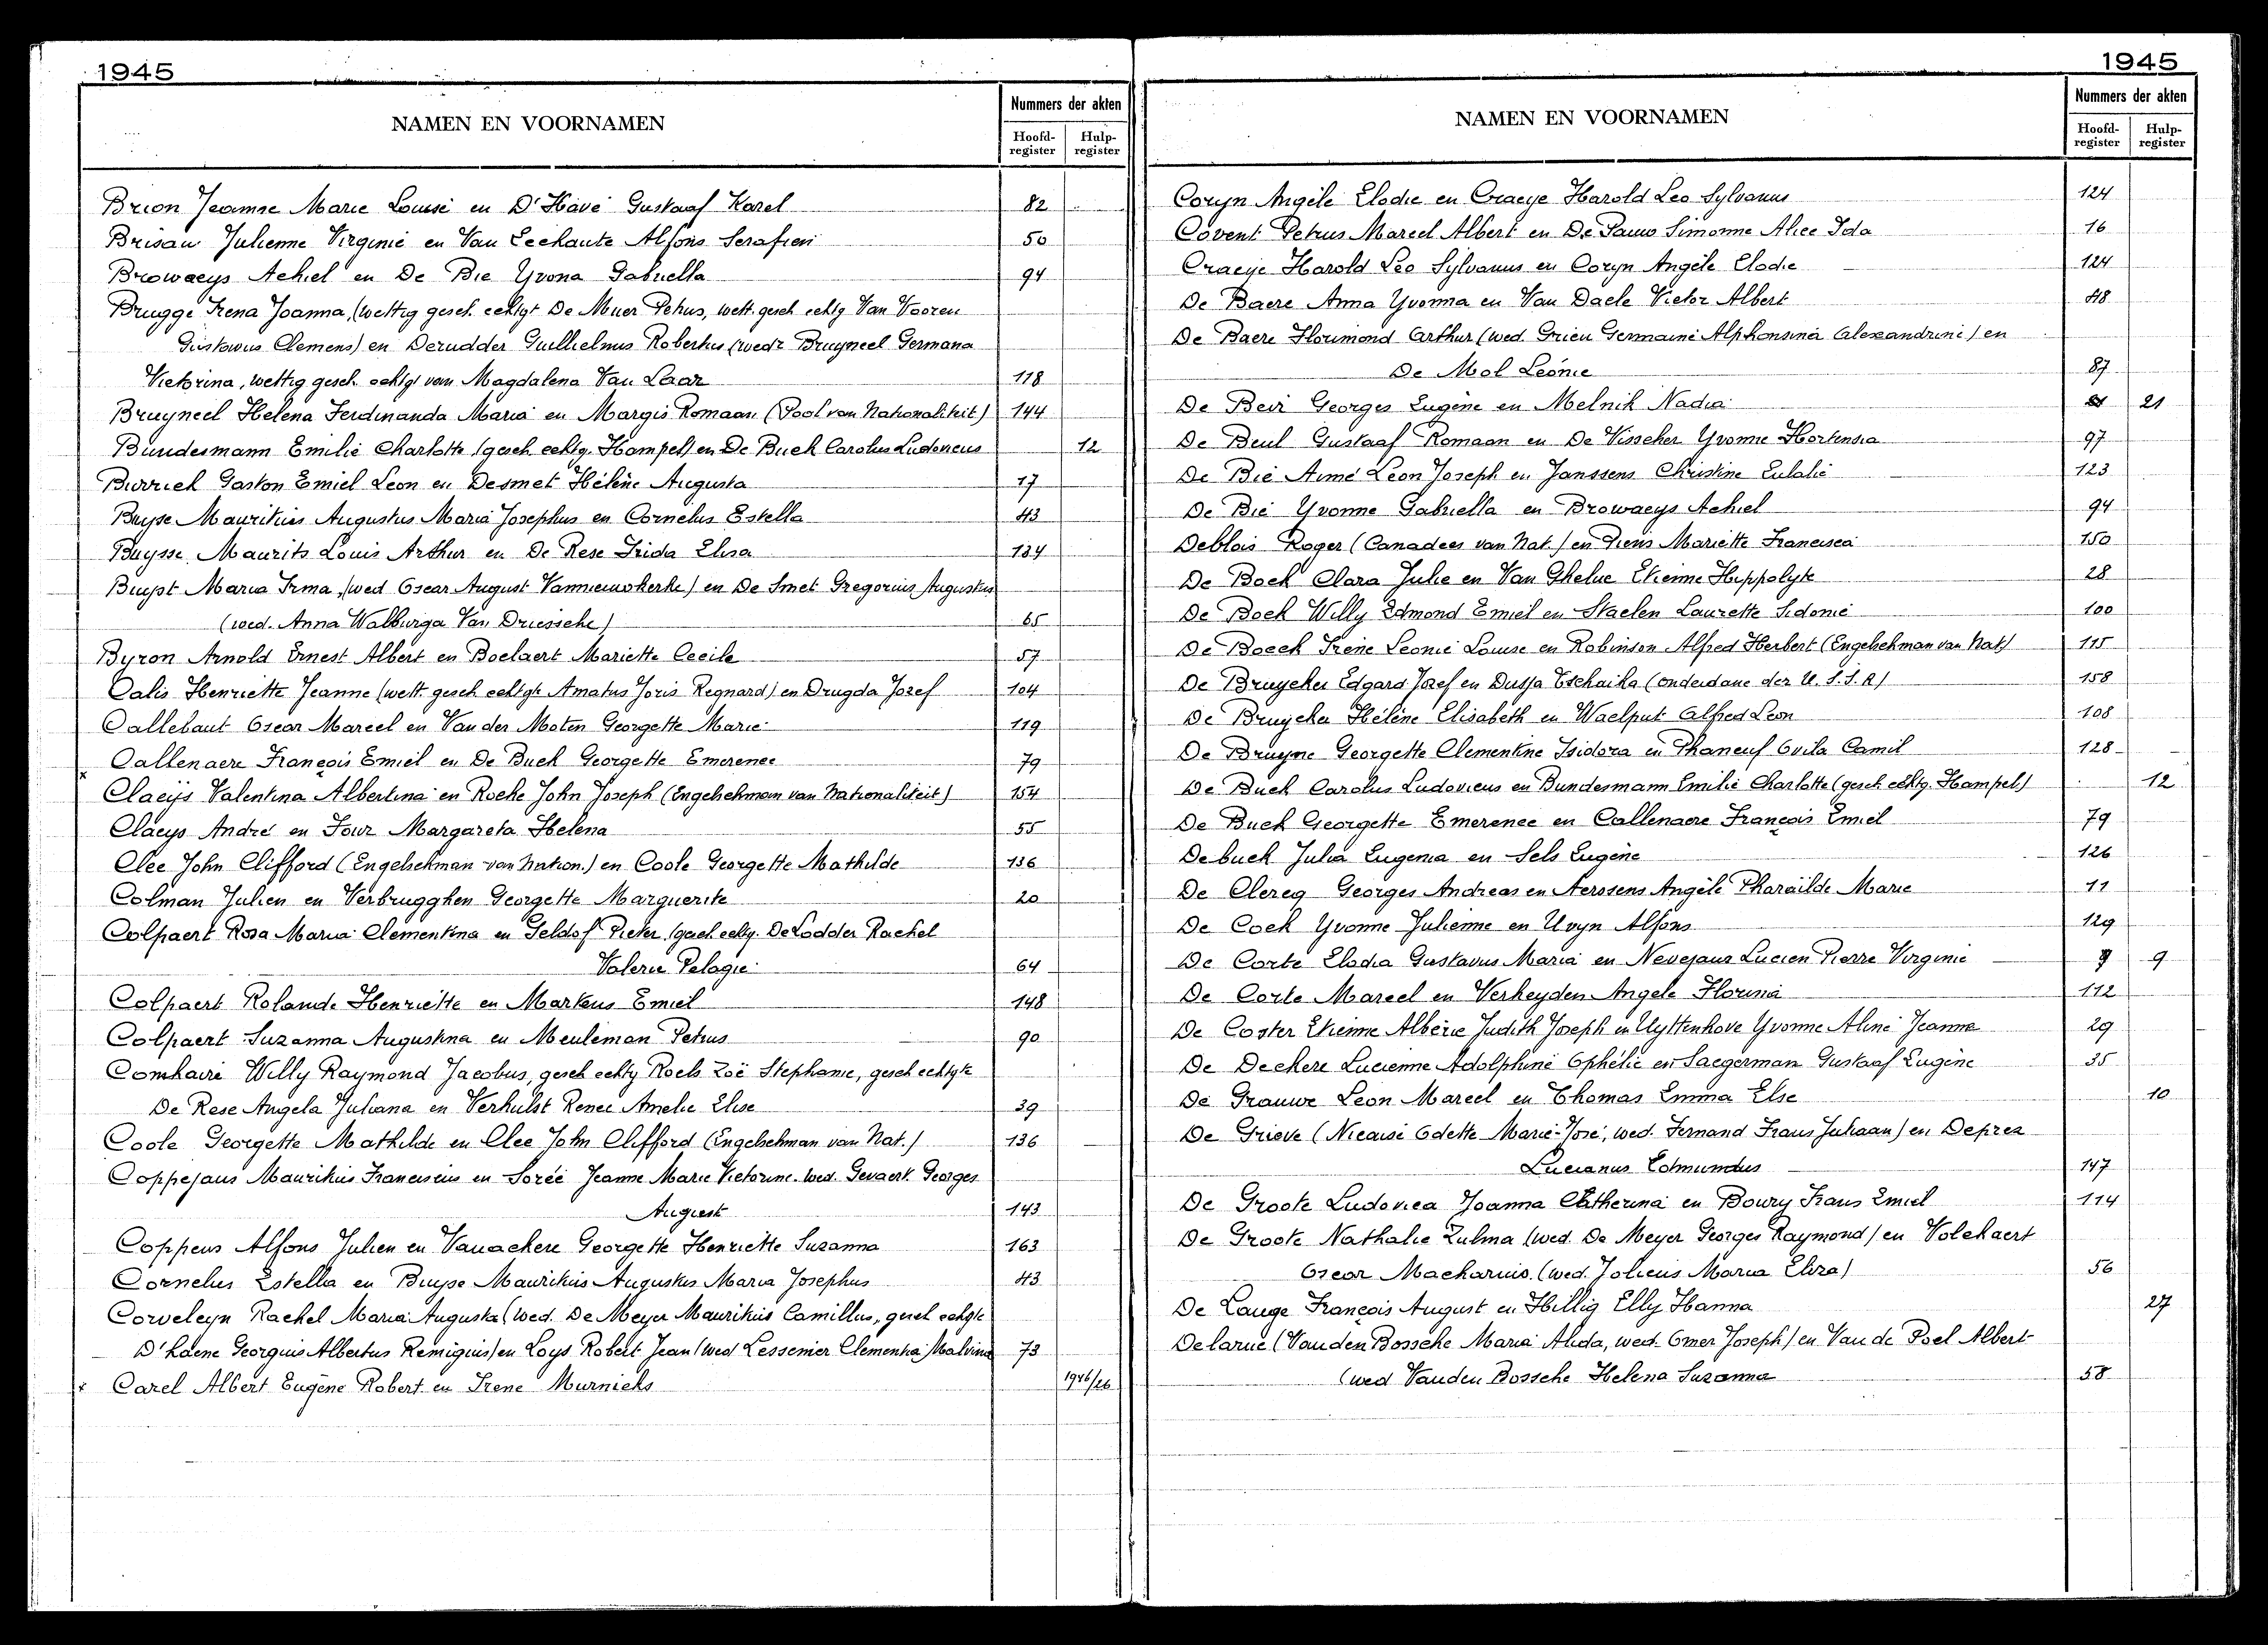 1945
NAMEN EN VOORNAMEN
Nummers der akten
Hoofd-register
Hulp-register
Brion Jeanne Marie Louise en D'Have Gustaaf Karel 82
Brisau Julienne Virginie en Van Eechaute Alfons Serafien 50
Browaeys Achiel en De Bie Yvona Gabriella 94
Brugge Irena Joanna, (wettig gesch. echtgt De Muer Petrus, wett. gesch echtg Van Vooren
Gustavus Clemens) en Derudder Guillielmus Robertus (wedr Bruyneel Germana
Victorina, wettig gesch. echtgt van Magdalena Van Laar 118
Bruyneel Helena Ferdinanda Maria en Margis Romaan (Pool van Nationaliteit) 144
Bundesmann Emilie Charlotte (gesch. echtg. Hampel) en De Buck Carolus Ludovicus 12
Burrick Gaston Emiel Leon en Desmet Hélène Augusta 17
Buyse Mauritius Augustus Maria Josephus en Cornelus Estella 43
Buysse Maurits Louis Arthur en De Rese Frida Elisa 134
Buyst Maria Irma, (wed Oscar August Vannieuwkerke) en De Smet Gregorius Augustus
(wed. Anna Walburga Van Driessche) 65
Byron Arnold Ernest Albert en Boelaert Mariette Cecile 57
Calis Henriette Jeanne (wett. gesch echtgte Amatus Joris Regnard) en Drugda Jozef 104
Callebaut Oscar Marcel en Van der Moten Georgette Marie 119
x Callenaere François Emiel en De Buck Georgette Emerence 79
Claeijs Valentina Albertina en Roche John Joseph (Engelschman van Nationaliteit) 154
Claeys André en Four Margareta Helena 55
Clee John Clifford (Engelschman van Nation.) en Coole Georgette Mathilde 136
Colman Julien en Verbrugghen Georgette Marguerite 20
Colpaert Rosa Maria Clementina en Geldof Pieter (gesch echtg. De Lodder Rachel
Valerie Pelagie 64
Colpaert Rolande Henriette en Markeus Emiel 148
Colpaert Suzanna Augustina en Meuleman Petrus 90
Comhaire Willy Raymond Jacobus, gesch echtg Roels Zoë Stephanie, gesch echtgte
De Rese Angela Juliana en Verhulst Renee Amelie Elise 39
Coole Georgette Mathilde en Clee John Clifford (Engelschman van Nat.) 136
Coppejans Mauritius Franciscus en Sorée Jeanne Marie Victorine wed. Gevaert Georges
August 143
Coppens Alfons Julien en Vanackere Georgette Henriette Suzanna 163
Cornelus Estella en Buyse Mauritius Augustus Maria Josephus 43
Corveleyn Rachel Maria Augusta (wed. De Meyer Mauritius Camillus, gesch echtgte
D'haene Georguis Albertus Remigius) en Loys Robert Jean (wed Lessenier Clementia Malvina 73
x Carel Albert Eugène Robert en Irene Murnieks 1946/26
1945
NAMEN EN VOORNAMEN
Nummers der akten
Hoofd-register
Hulp-register
Coryn Angèle Elodie en Craeye Harold Leo Sylvanus 124
Covent Petrus Marcel Albert en De Pauw Simonne Alice Ida 16
Craeye Harold Leo Sylvanus en Coryn Angèle Elodie 124
De Baere Anna Yvonna en Van Daele Victor Albert 48
De Baere Florimond Arthur (wed. Grieu Germaine Alphonsina Alexandrine) en
De Mol Leonie 87
De Bevi Georges Eugène en Melnik Nadia 21
De Beul Gustaaf Romaan en De Visscher Yvonne Hortensia 97
De Bie Aimé Leon Joseph en Janssens Christine Eulalie 123
De Bie Yvonne Gabriella en Browaeys Achiel 94
Deblois Roger (Canadees van Nat.) en Diens Mariette Francisca 150
De Bock Clara Julie en Van Ghelue Etienne Hippolyte 28
De Bock Willy Edmond Emiel en Staelen Laurette Sidonie 100
De Boeck Irene Leonie Louise en Robinson Alfred Herbert (Engelschman van Nat) 115
De Bruycker Edgard Jozef en Dussa Tschaika (onderdane der U.S.S.R) 158
De Bruycker Hélène Elisabeth en Waelput Alfred Leon 108
De Bruyne Georgette Clementine Isidora en Phaneuf Ovila Camil 128
De Buck Carolus Ludovicus en Bundesmann Emilie Charlotte (gesch echtg. Hampel) 12
De Buck Georgette Emerence en Callenaere François Emiel 79
Debuck Julia Eugenia en Sels Eugène 126
De Clercq Georges Andreas en Aerssens Angèle Pharailde Marie 11
De Cock Yvonne Julienne en Uvyn Alfons 129
De Corte Elodia Gustavus Maria en Nevejans Lucien Pierre Virginie 9
De Corte Marcel en Verheyden Angele Florina 112
De Coster Etienne Albéric Judith Joseph en Uyttenhove Yvonne Aline Jeanne 29
De Deckere Lucienne Adolphine Ophélie en Saegerman Gustaaf Eugène 35
De Grauwe Leon Marcel en Thomas Emma Else 10
De Grieve (Nicaise Odette Marie-José, wed. Fernand Frans Juliaan) en Deprez
Lucianus Edmundus 147
De Groote Ludovica Joanna Catherina en Boury Frans Emiel 114
De Groote Nathalie Zulma (wed. De Meyer Georges Raymond) en Volckaert
Oscar Macharius (wed. Jolieus Maria Eliza) 56
De Lange François August en Hillig Elly Hanna 27
Delarue (Vanden Bossche Maria Alida, wed. Omer Joseph) en Van de Poel Albert
(wed Vanden Bossche Helena Suzanna 58